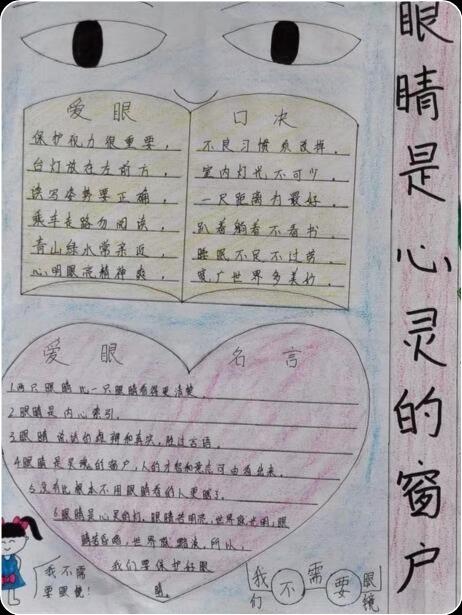 眼睛是心灵的窗户
爱眼 口决
保护视力很重要，
台灯放在左前方，
读写姿势要正确，
乘车走路勿阅读，
青山绿水常亲近，
心明眼亮精神爽，
不良习惯须改掉。
室内灯光不可少。
一尺距离为最好。
趴着躺着不看书。
睡眠不足不过劳。
宽广世界多美妙。
爱眼 名言
1.两只眼睛比一只眼睛看得更清楚。
2.眼睛是内心索引。
3.眼睛说话的雄辩和真实，胜过言语。
4.眼睛是灵魂的窗户，人的才智和意志可由看出来。
5.没有比根本不用眼睛看的人更瞎了。
6.眼睛是心灵的灯，眼睛若明亮，世界就光明，眼
睛若昏暗，世界就黯淡。所以，
我们要保护好眼
睛。
我不需
要眼镜！
我们不需要眼镜